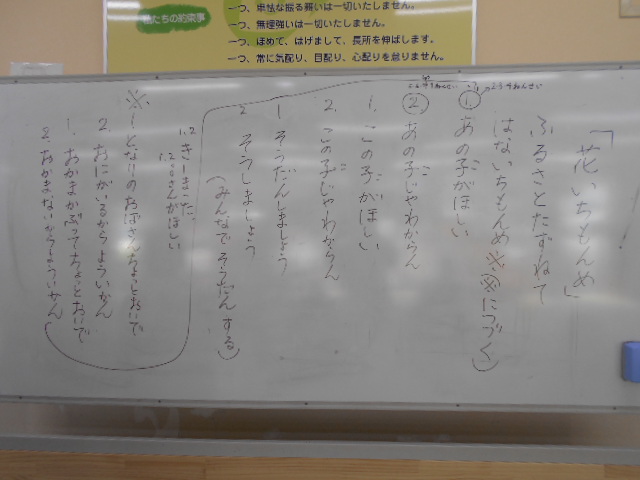 私たちの約束事
一つ、卑怯な振る舞いは一切いたしません。
一つ、無理強いは一切いたしません。
一つ、ほめて、はげまして、長所を伸ばします。
一つ、常に気配り、目配り、心配りを怠りません。
「花いちもんめ」
ふるさとたずねて
はないちもんめ ※(※につづく)
① あの子がほしい
② あの子じゃわからん
1. この子がほしい
2. この子じゃわからん
1 そうだんしましょう
2 そうしましょう
(みんなでそうだんする)
1.2 きーまった
1.2 ○○さんがほしい
※ 1 となりのおばさんちょっとおいで
2. おにがいるからよういかん
1. おかまかぶってちょっとおいで
2. おかまないからよういかん